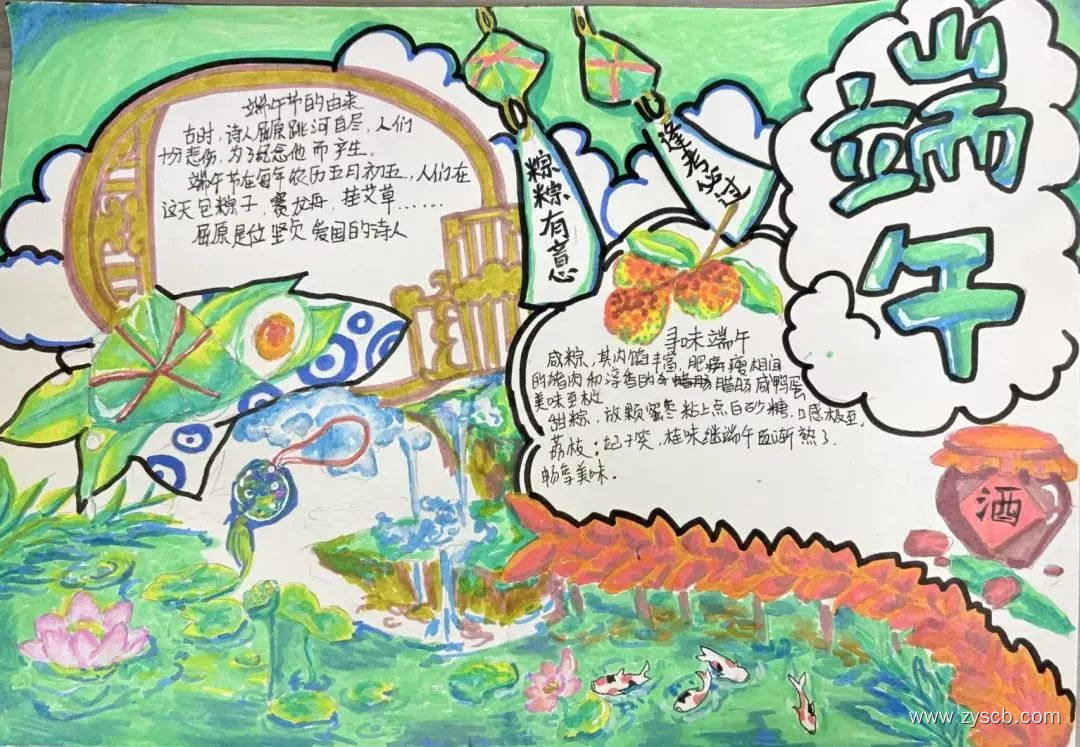 端午
粽粽有意
逢考必过
端午节的由来
古时,诗人屈原跳河自尽,人们
十分悲伤,为了纪念他而产生。
端午节在每年农历五月初五,人们在
这天包粽子,赛龙舟,挂艾草……
屈原是位坚贞爱国的诗人
寻味端午
咸粽,其内馅丰富,肥瘦相间
的猪肉和浮香的腊肠咸鸭蛋
美味至极
甜粽,放颗蜜枣粘上点白砂糖,口感极至,
荔枝:妃子笑,桂味继端午逐渐熟了.
畅享美味.
酒
www.zyscb.com